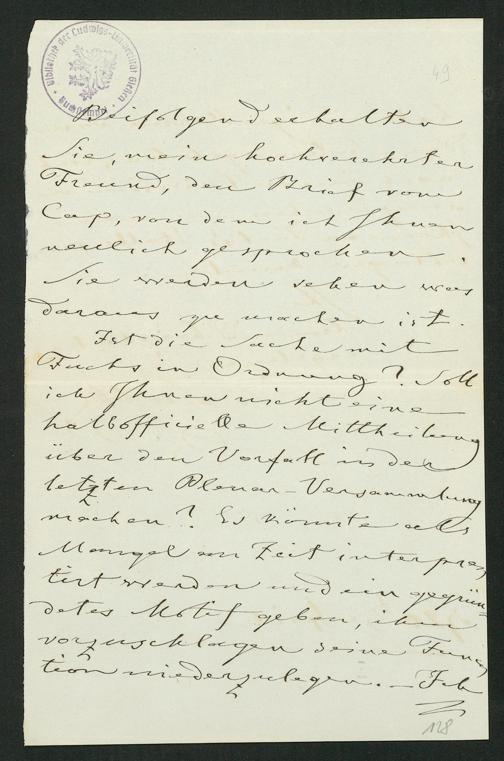 49
Bibliothek der Ludwigs-Universität Gießen
Beifolgend erhalten
Sie, mein hochverehrter
Freund, den Brief vom
Cap, von dem ich Ihnen
neulich gesprochen.
Sie werden sehen was
daraus zu machen ist.
Ist die Sache mit
Fuchs in Ordnung? Soll
ich Ihnen nicht eine
halbofficielle Mittheilung
über den Vorfall in der
letzten Plenar-Versammlung
machen? Es könnte als
Mangel an Zeit interpre-
tirt werden und ein gegrün-
detes Motif geben, ihm
vorzuschlagen seine Func-
tion niederzulegen. – Ich
128